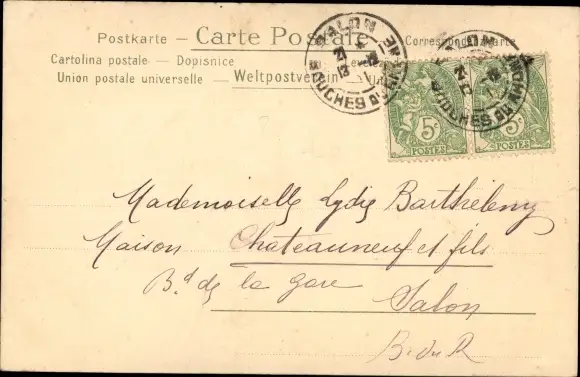 Postkarte – Carte Postale – Correspondenzkarte
Cartolina postale – Dopisnice – Levelező
Union postale universelle – Weltpostverein –
SALON
BOUCHES DU RHONE
21
13
SALON
BOUCHES DU RHONE
5c
POSTES
5c
POSTES
Mademoiselle Lydie Barthélemy
Maison Chateauneuf et fils
Bd de la gare Salon
B. du R